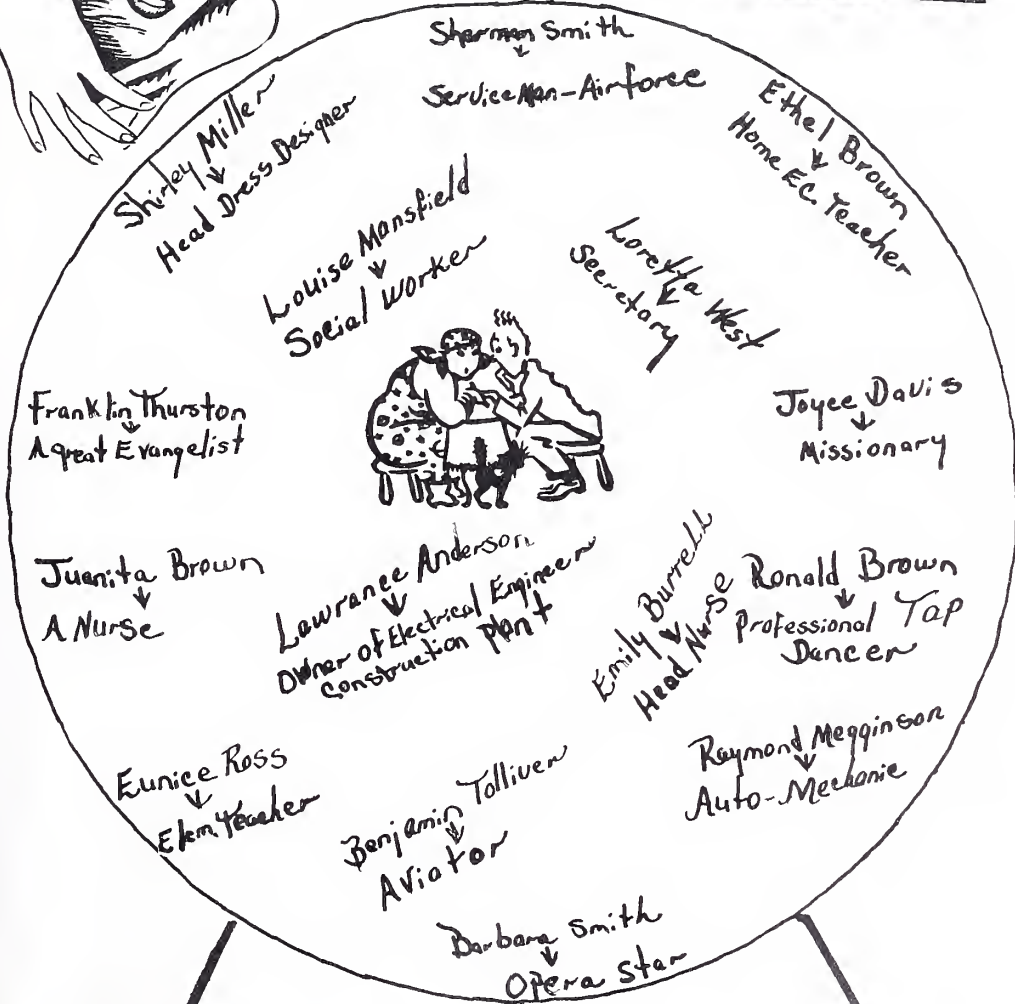 Sherman Smith
Service Man-Airforce
Shirley Miller
Head Dress Designer
Ethel Brown
Home EC. Teacher
Louise Mansfield
Social Worker
Loretta West
Secretary
Franklin Thurston
A great Evangelist
Joyce Davis
Missionary
Juanita Brown
A Nurse
Lawrance Anderson
Owner of Electrical Engineer
Construction plant
Emily Burrell
Head Nurse
Ronald Brown
Professional Tap
Dancer
Eunice Ross
Elem. Teacher
Benjamin Tolliver
Aviator
Raymond Megginson
Auto-Mechanic
Barbara Smith
Opera Star